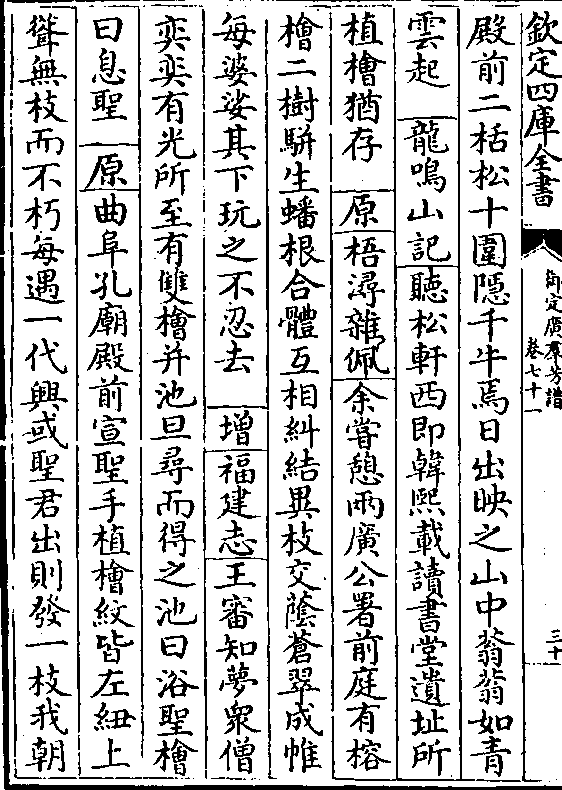 欽定四庫全書
御定廣羣芳譜
卷七十一
三十
殿前二栝松十圍隱千牛焉日出映之山中蓊蓊如青
雲起 龍鳴山記聽松軒西即韓熙載讀書堂遺址所
植檜猶存 原梧潯雜佩余嘗憩兩廣公署前庭有榕
檜二樹駢生蟠根合體互相糾結異枝交蔭蒼翠成帷
每婆娑其下玩之不忍去 增福建志王審知夢衆僧
奕奕有光所至有雙檜并池旦尋而得之池曰浴聖檜
曰息聖 原曲阜孔廟殿前宣聖手植檜紋皆左紐上
聳無枝而不朽每遇一代興或聖君出則發一枝我朝